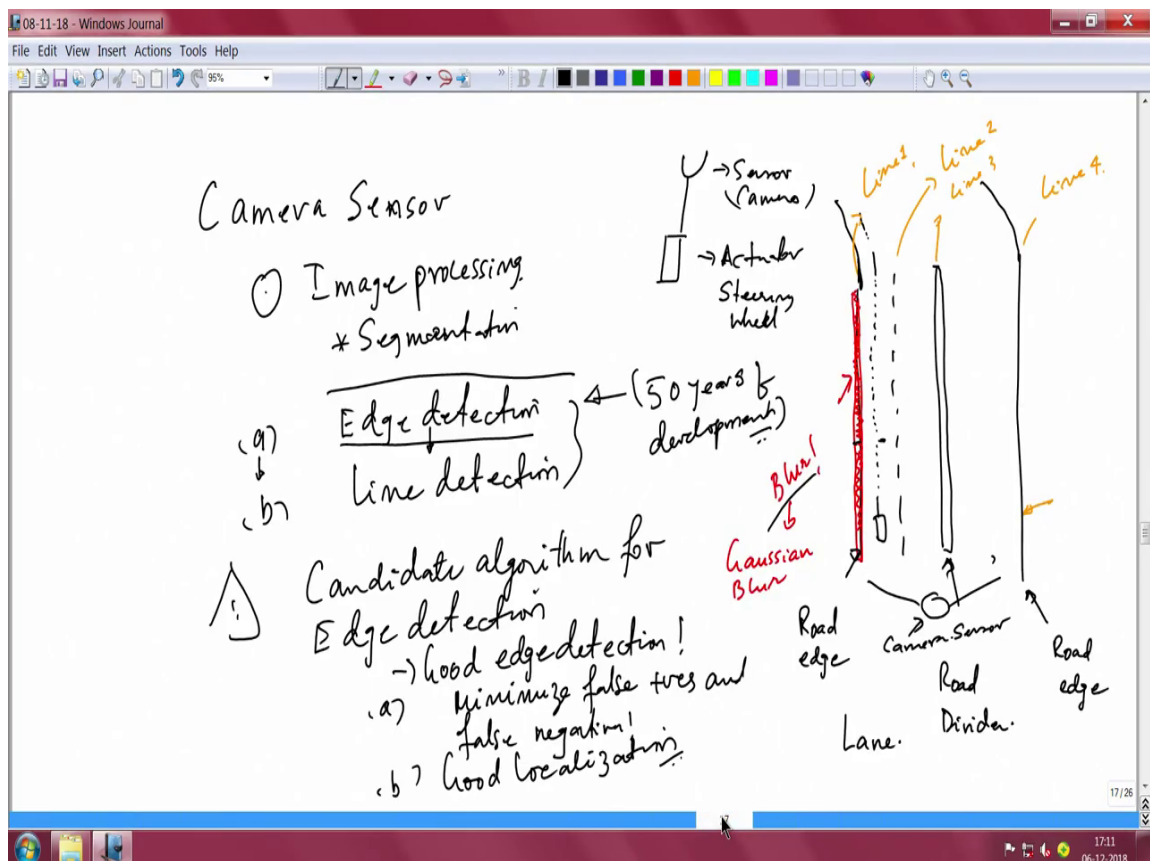 08-11-18 - Windows Journal
File Edit View Insert Actions Tools Help
95%
B I
Camera Sensor
Image processing
* Segmentatin
Edge detection
(a)
Line detection
(b)
(50 years of
development)
Candidate algorithm for
Edge detection
→ Good edge detection!
(a) Minimize false +ves and
false negation!
(b) Good Localization
→ Sensor
(Camera)
→ Actuator
Steering
wheel
Line 1
Line 2
Line 3
Line 4
Blur!
Gaussian
Blur
Road
edge
Camera Sensor
Road
Divider.
Road
edge
Lane.
17/26
17:11
06-12-2018